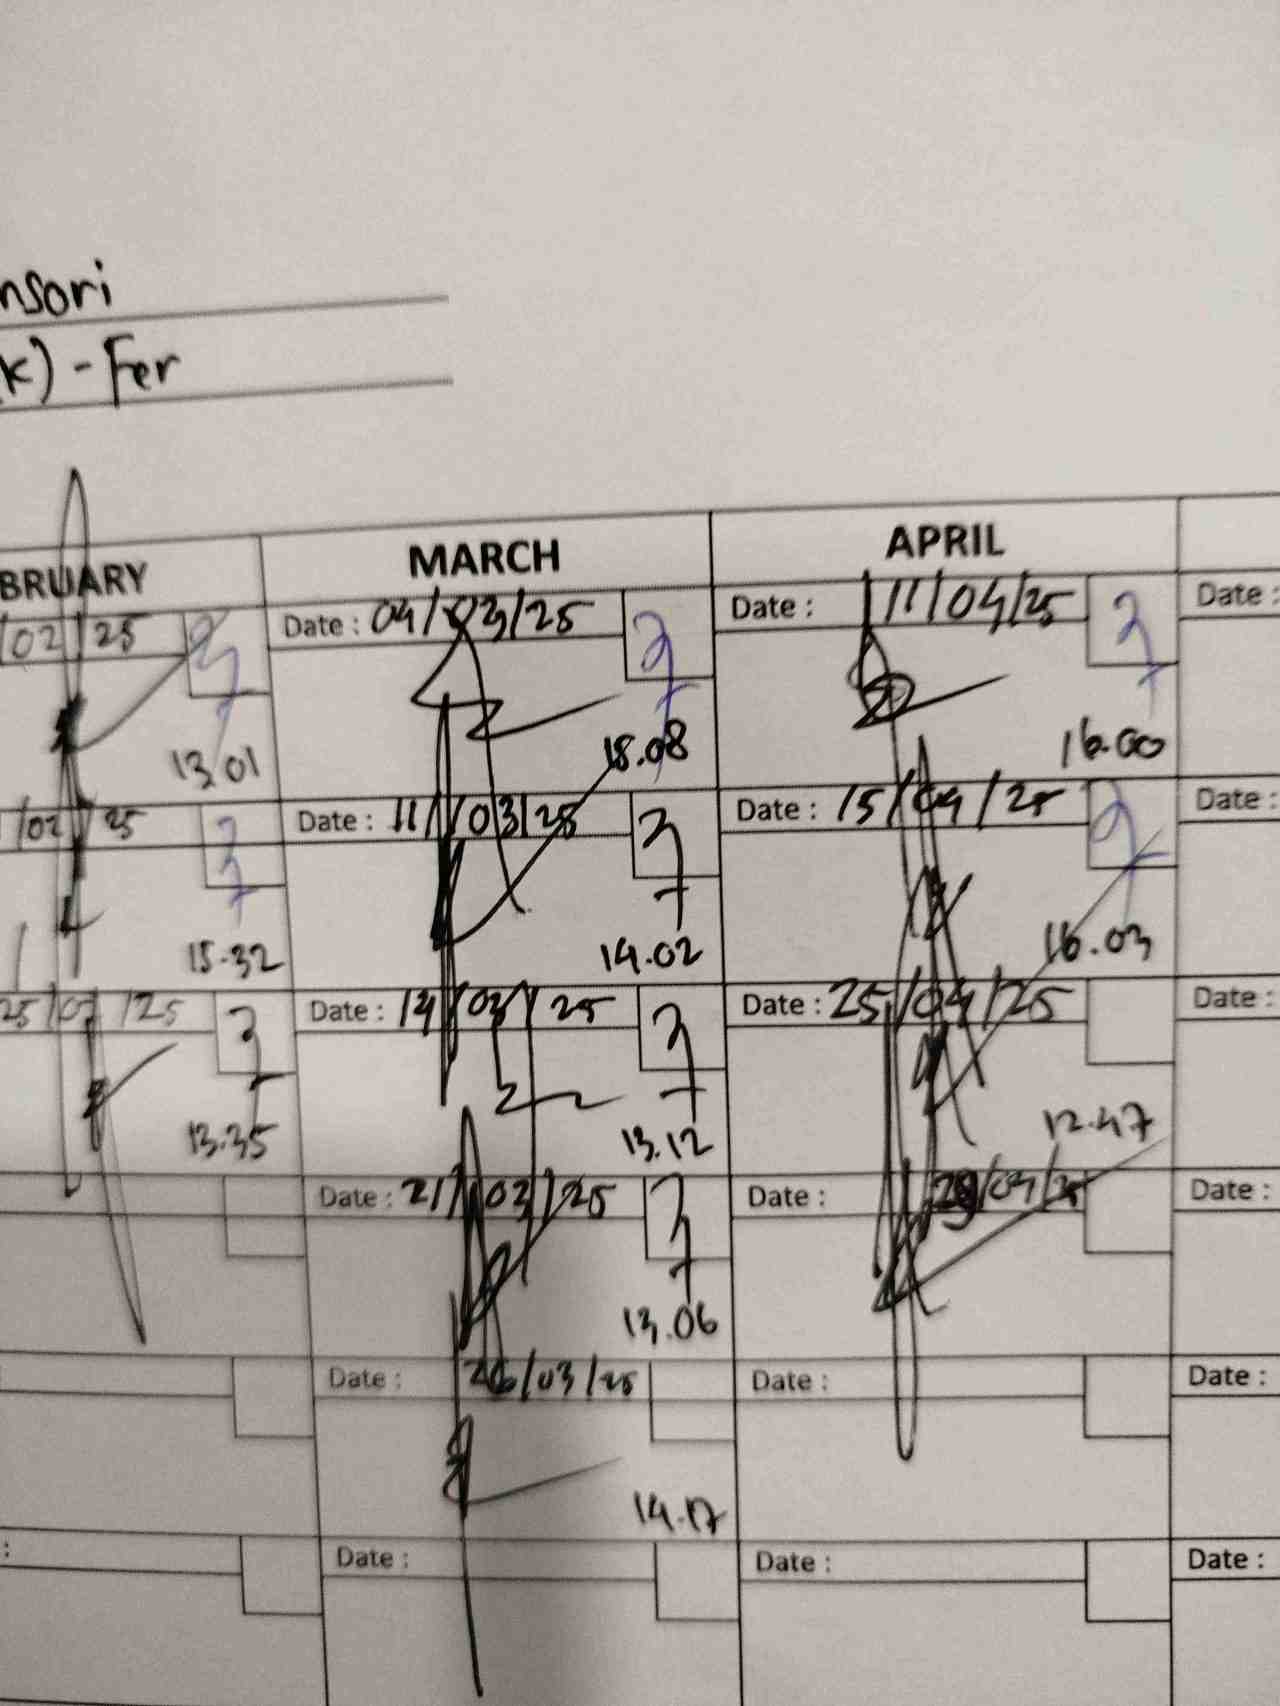 nsori
k) - Fer
BRUARY MARCH APRIL
/02/25 Date : 04/03/25 Date : 11/04/25 Date :
13.01 18.08 16.00
/02/25 Date : 11/03/25 Date : 15/04/25 Date :
15.32 14.02 16.03
25/02/25 Date : 14/03/25 Date : 25/04/25 Date :
13.35 13.12 12.47
Date : 21/03/25 Date : /04/25 Date :
13.06
Date : 26/03/25 Date : Date :
14.17
: Date : Date : Date :